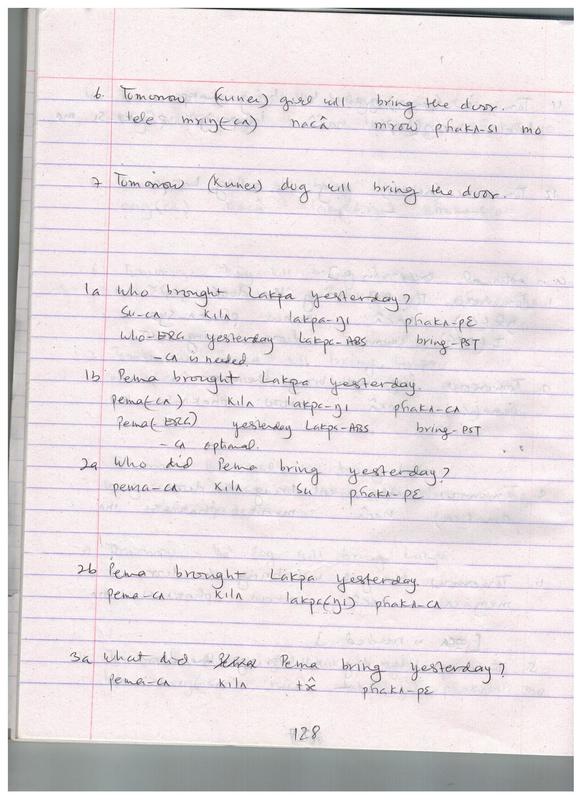 6. Tomorrow (Kunes) girl will bring the door.
tele mriŋ(-cʌ) nacâ mrow phakʌ-si mo
7 Tomorrow (Kunes) dog will bring the door.
1a Who brought Lakpa yesterday?
su-cʌ kilʌ lakpa-ŋi phakʌ-pɛ
who-ERG yesterday Lakpa-ABS bring-PST
-cʌ is needed.
1b Pema brought Lakpa yesterday.
pema(-cʌ) kilʌ lakpa-ŋi phakʌ-cʌ
Pema(-ERG) yesterday Lakpa-ABS bring-PST
-cʌ optional.
2a Who did Pema bring yesterday?
pema-cʌ kilʌ su phakʌ-pɛ
2b Pema brought Lakpa yesterday.
pema-cʌ kilʌ lakpa(ŋi) phakʌ-cʌ
3a What did Pema bring yesterday?
pema-cʌ kilʌ phakʌ-pɛ
128